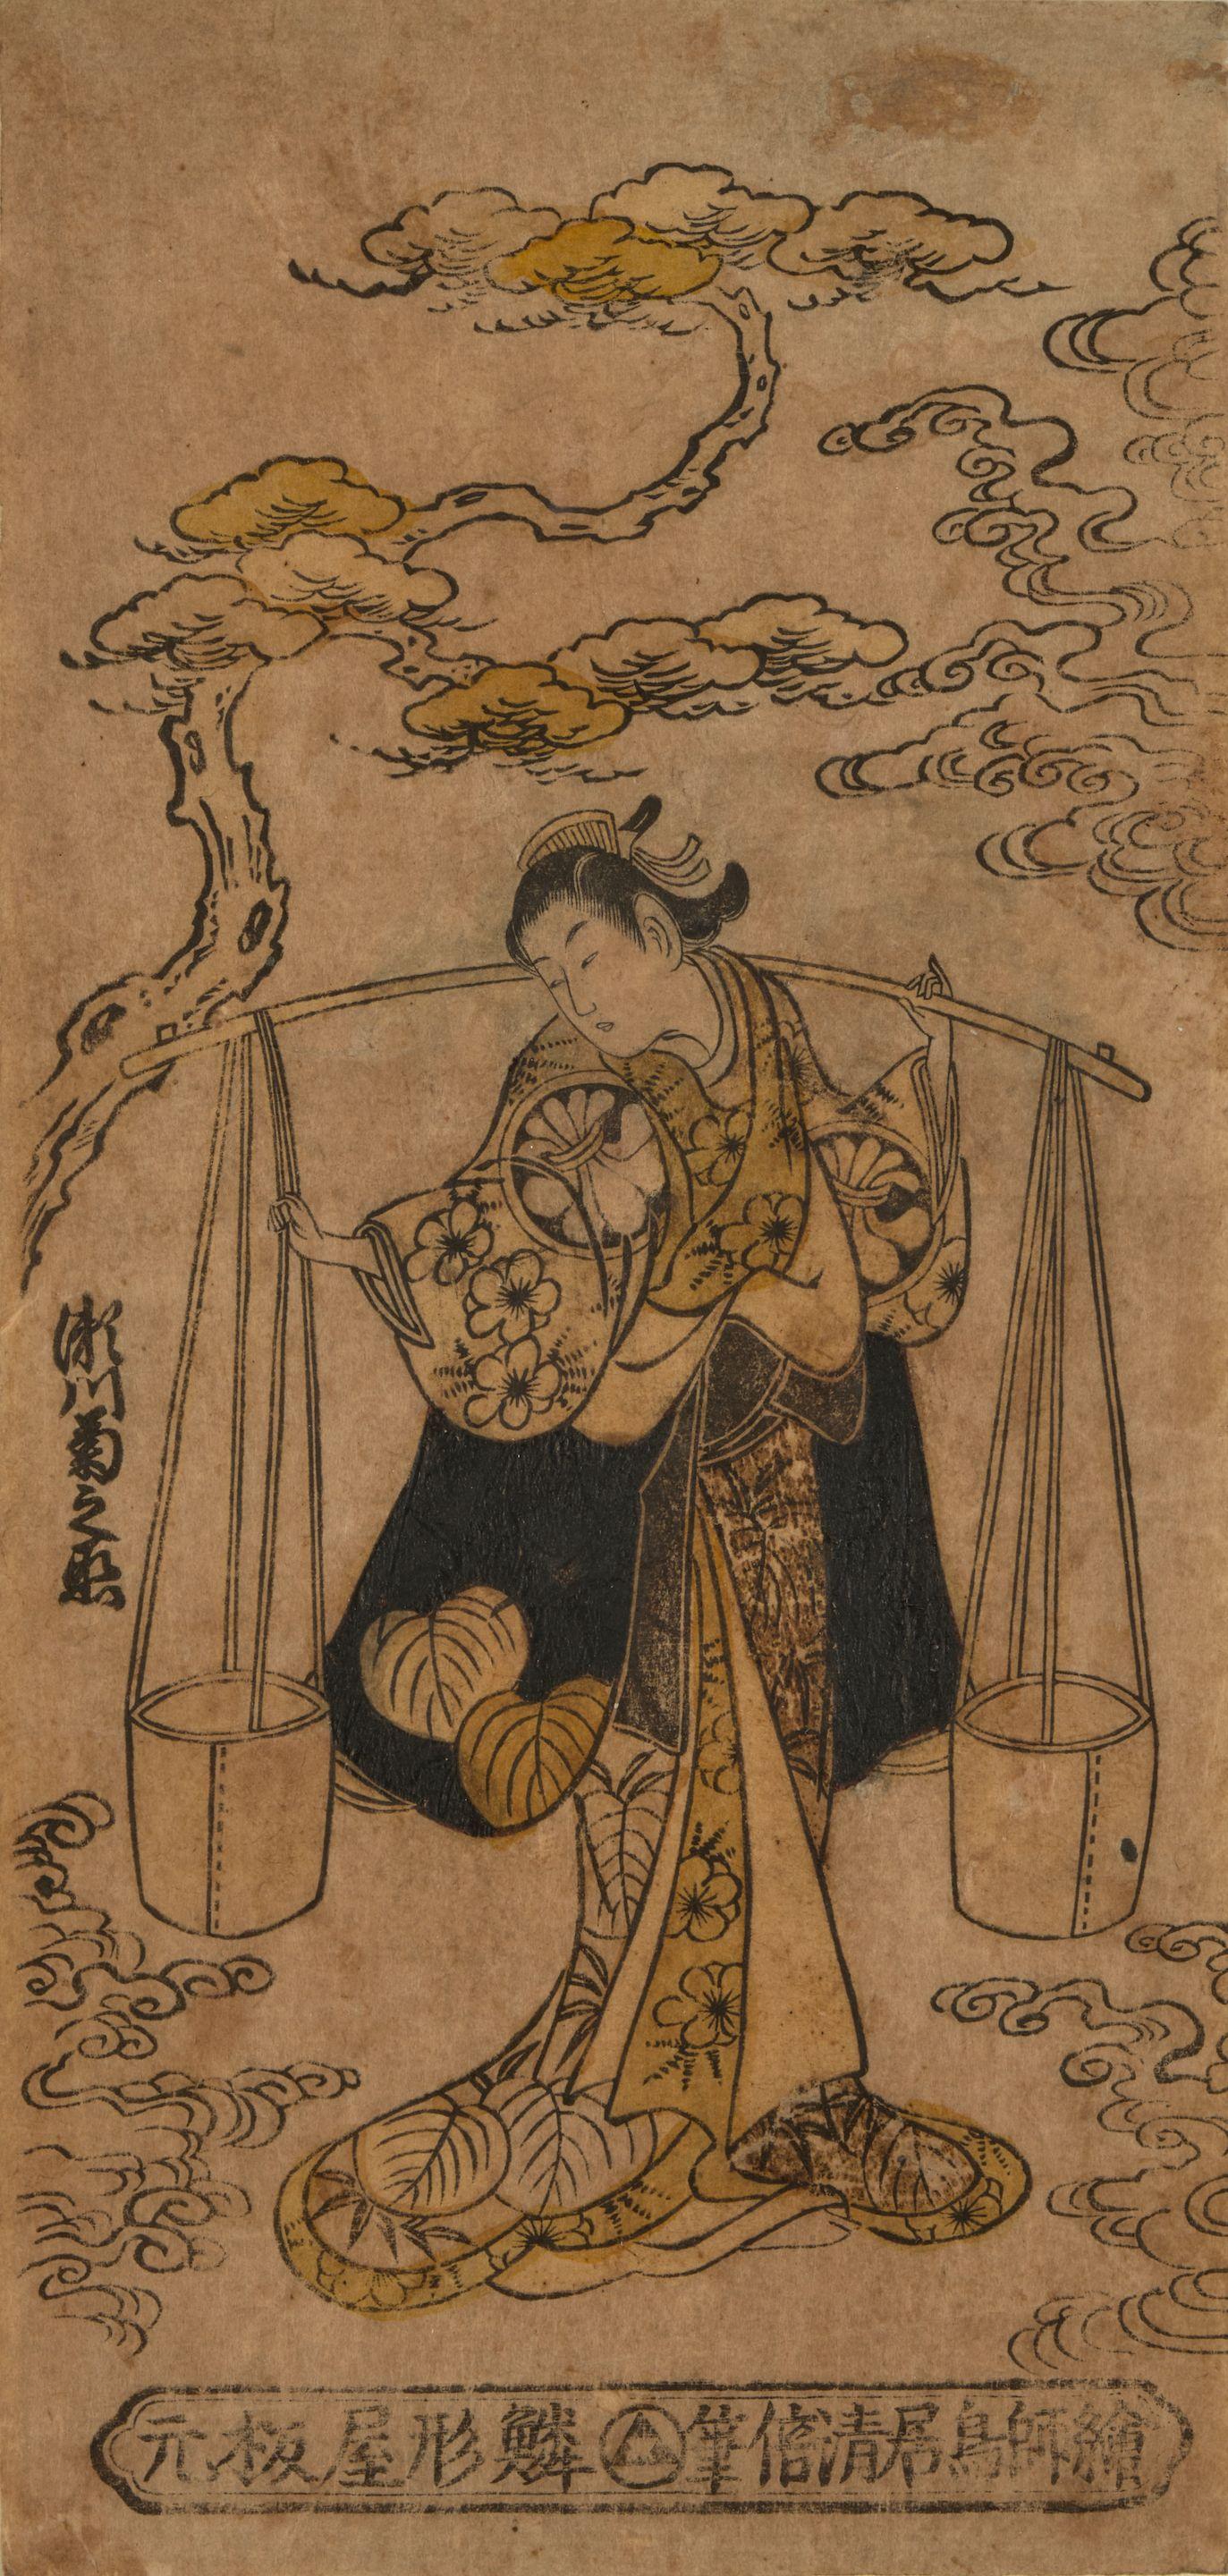 瀬川菊之丞
繪師鳥居清倍筆 鱗形屋板元